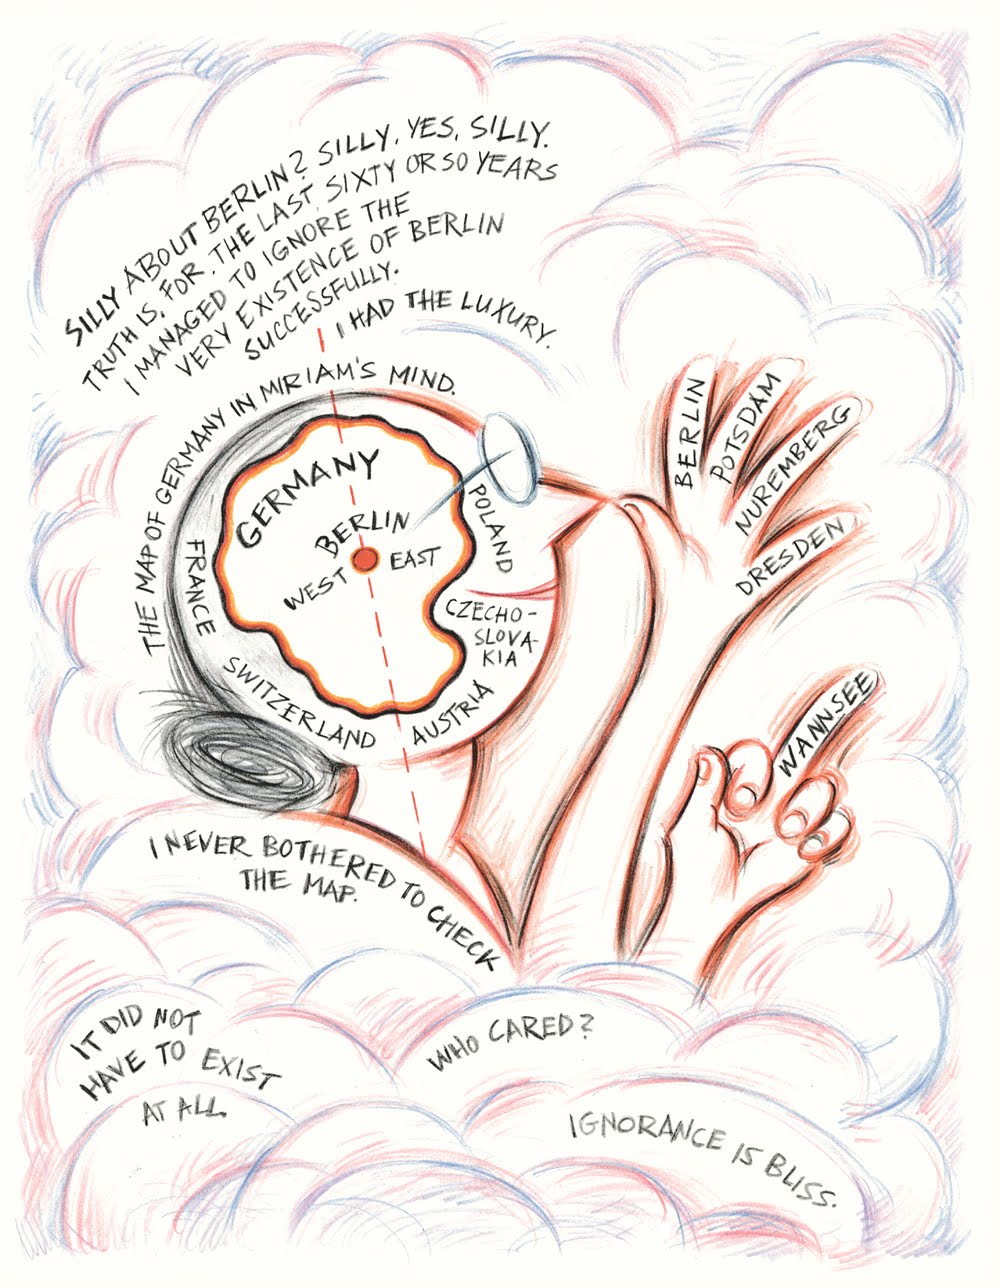 SILLY ABOUT BERLIN? SILLY, YES, SILLY.
TRUTH IS, FOR THE LAST SIXTY OR SO YEARS
I MANAGED TO IGNORE THE
VERY EXISTENCE OF BERLIN
SUCCESSFULLY.
I HAD THE LUXURY.
THE MAP OF GERMANY IN MIRIAM'S MIND.
GERMANY
BERLIN
WEST
EAST
POLAND
FRANCE
CZECHO-
SLOVA-
KIA
SWITZERLAND
AUSTRIA
BERLIN
POTSDAM
NUREMBERG
DRESDEN
WANNSEE
I NEVER BOTHERED TO CHECK
THE MAP.
IT DID NOT
HAVE TO EXIST
AT ALL.
WHO CARED?
IGNORANCE IS BLISS.